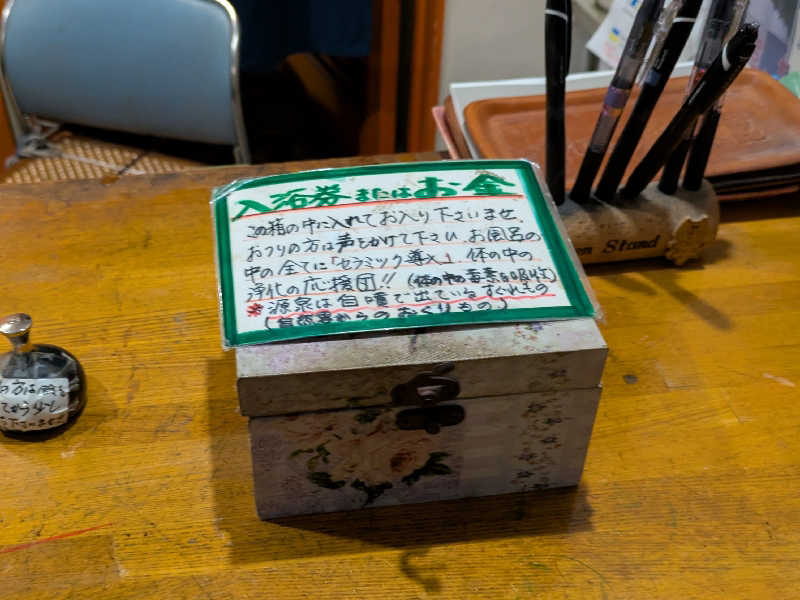 入浴券またはお金
この箱の中に入れてお入り下さいませ。
おつりの方は声をかけて下さい、お風呂の
中の全てに「セラミック導入」体の中の
浄化の応援団!!(体の中の毒素を吸収)
※源泉は自噴で出ているすぐれもの
(自然界からのおくりもの)
の方は
Stand